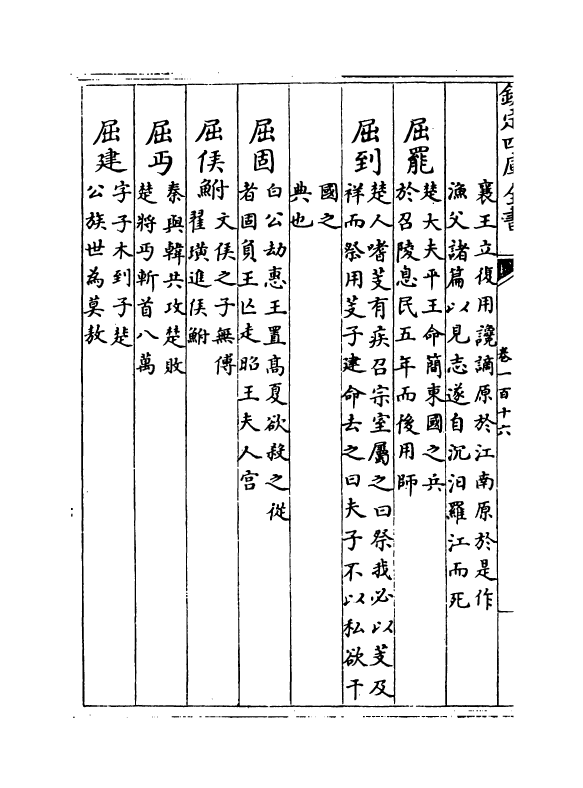 欽定四庫全書
卷一百十六
襄王立復用讒謫原於江南原於是作
漁父諸篇以見志遂自沉汨羅江而死
屈罷
楚大夫平王命簡東國之兵
於召陵息民五年而後用師
屈到
楚人嗜芰有疾召宗室屬之曰祭我必以芰及
祥而祭用芰子建命去之曰夫子不以私欲干
國之
典也
屈固
白公劫惠王置髙夏欲殺之從
者固負王亡走昭王夫人宫
屈侯鮒
文侯之子無傅
翟璜進侯鮒
屈丐
秦與韓共攻楚敗
楚將丐斬首八萬
屈建
字子木到子楚
公族世為莫敖